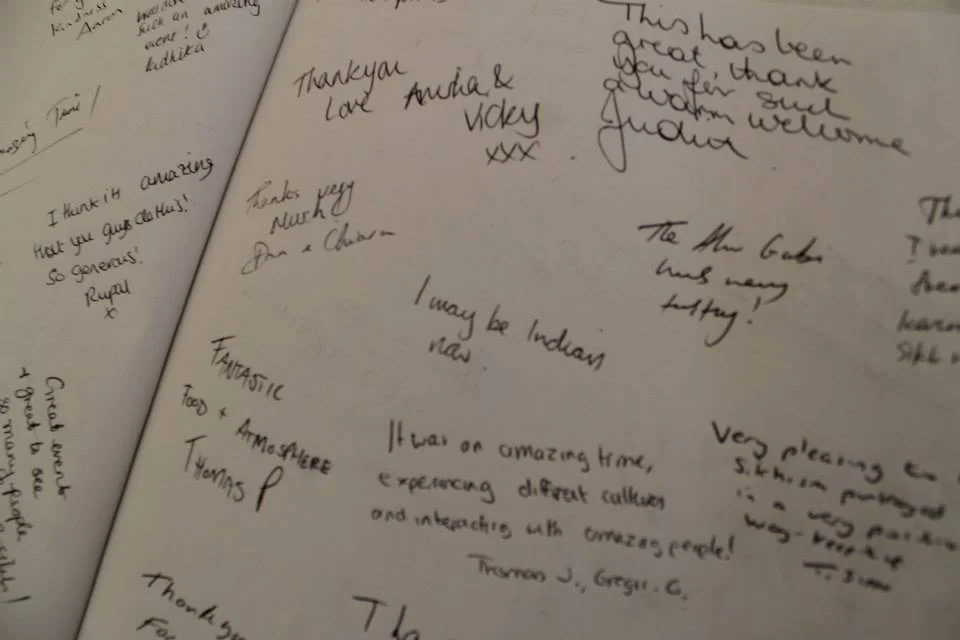 kindness
Aaron
such an amazing
event! ☺
Radhika
Time!
I think it amazing
that you guys do this!
So generous!
Rupal
x
Great event
+ great to see
so many people
Thankyou
Love Anusha &
Vicky
xxx
This has been
great, thank
you for such
a warm welcome
Thanks very
Much
Dan + Chiara
The Aloo Gobi
was very
I may be Indian
now
FANTASTIC
FOOD + ATMOSPHERE
THOMAS P
It was an amazing time,
experiencing different cultures
and interacting with amazing people!
Thomas J., Gregor. G.
Very pleasing to
Sikhism portrayed
in a very positive
way - keep it up
Thankyou
For